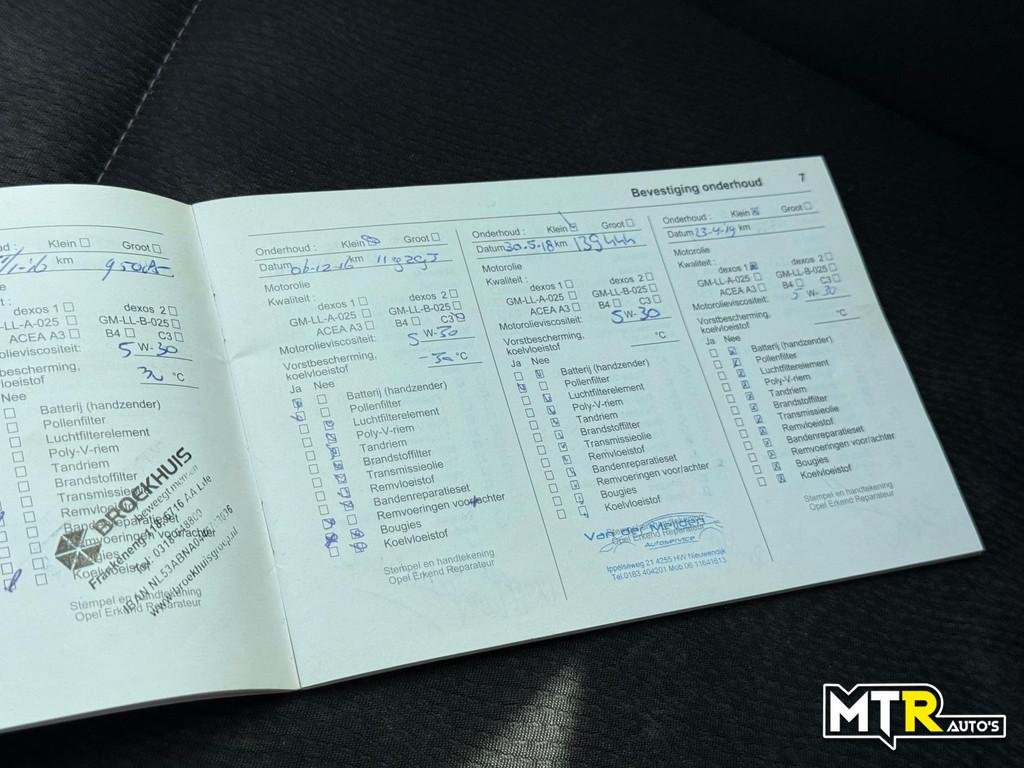 Bevestiging onderhoud 7
Klein Groot
km
dexos 1 dexos 2
GM-LL-B-025
ACEA A3 B4 C3
5 W-30
°C
Nee
Batterij (handzender)
Pollenfilter
Luchtfilterelement
Poly-V-riem
Tandriem
Brandstoffilter
Stempel en handtekening
Opel Erkend Reparateur
BROEKHUIS
www.broekhuisgroep.nl
Onderhoud : Klein Groot
Datum 06-12-16 km
Motorolie
Kwaliteit :
dexos 1 dexos 2
GM-LL-A-025 GM-LL-B-025
ACEA A3 B4 C3
Motorolieviscositeit: 5 W-30
Vorstbescherming,
koelvloeistof °C
Ja Nee
Batterij (handzender)
Pollenfilter
Luchtfilterelement
Poly-V-riem
Tandriem
Brandstoffilter
Transmissieolie
Remvloeistof
Bandenreparatieset
Remvoeringen voor/achter
Bougies
Koelvloeistof
Stempel en handtekening
Opel Erkend Reparateur
Onderhoud : Klein Groot
Datum 30.5-18 km 139444
Motorolie
Kwaliteit :
dexos 1 dexos 2
GM-LL-A-025 GM-LL-B-025
ACEA A3 B4 C3
Motorolieviscositeit: 5 W-30
Vorstbescherming,
koelvloeistof °C
Ja Nee
Batterij (handzender)
Pollenfilter
Luchtfilterelement
Poly-V-riem
Tandriem
Brandstoffilter
Transmissieolie
Remvloeistof
Bandenreparatieset
Remvoeringen voor/achter
Bougies
Koelvloeistof
Opel Erkend Reparateur
Autoservice
Ippelseweg 21 4255 HW Nieuwendijk
Tel.0183 404201 Mob.06 11641613
Onderhoud : Klein Groot
Datum 23-4-19 km
Motorolie
Kwaliteit :
dexos 1 dexos 2
GM-LL-A-025 GM-LL-B-025
ACEA A3 B4 C3
Motorolieviscositeit: 5 W-30
Vorstbescherming,
koelvloeistof °C
Ja Nee
Batterij (handzender)
Pollenfilter
Luchtfilterelement
Poly-V-riem
Tandriem
Brandstoffilter
Transmissieolie
Remvloeistof
Bandenreparatieset
Remvoeringen voor/achter
Bougies
Koelvloeistof
Stempel en handtekening
Opel Erkend Reparateur
MTR AUTO'S